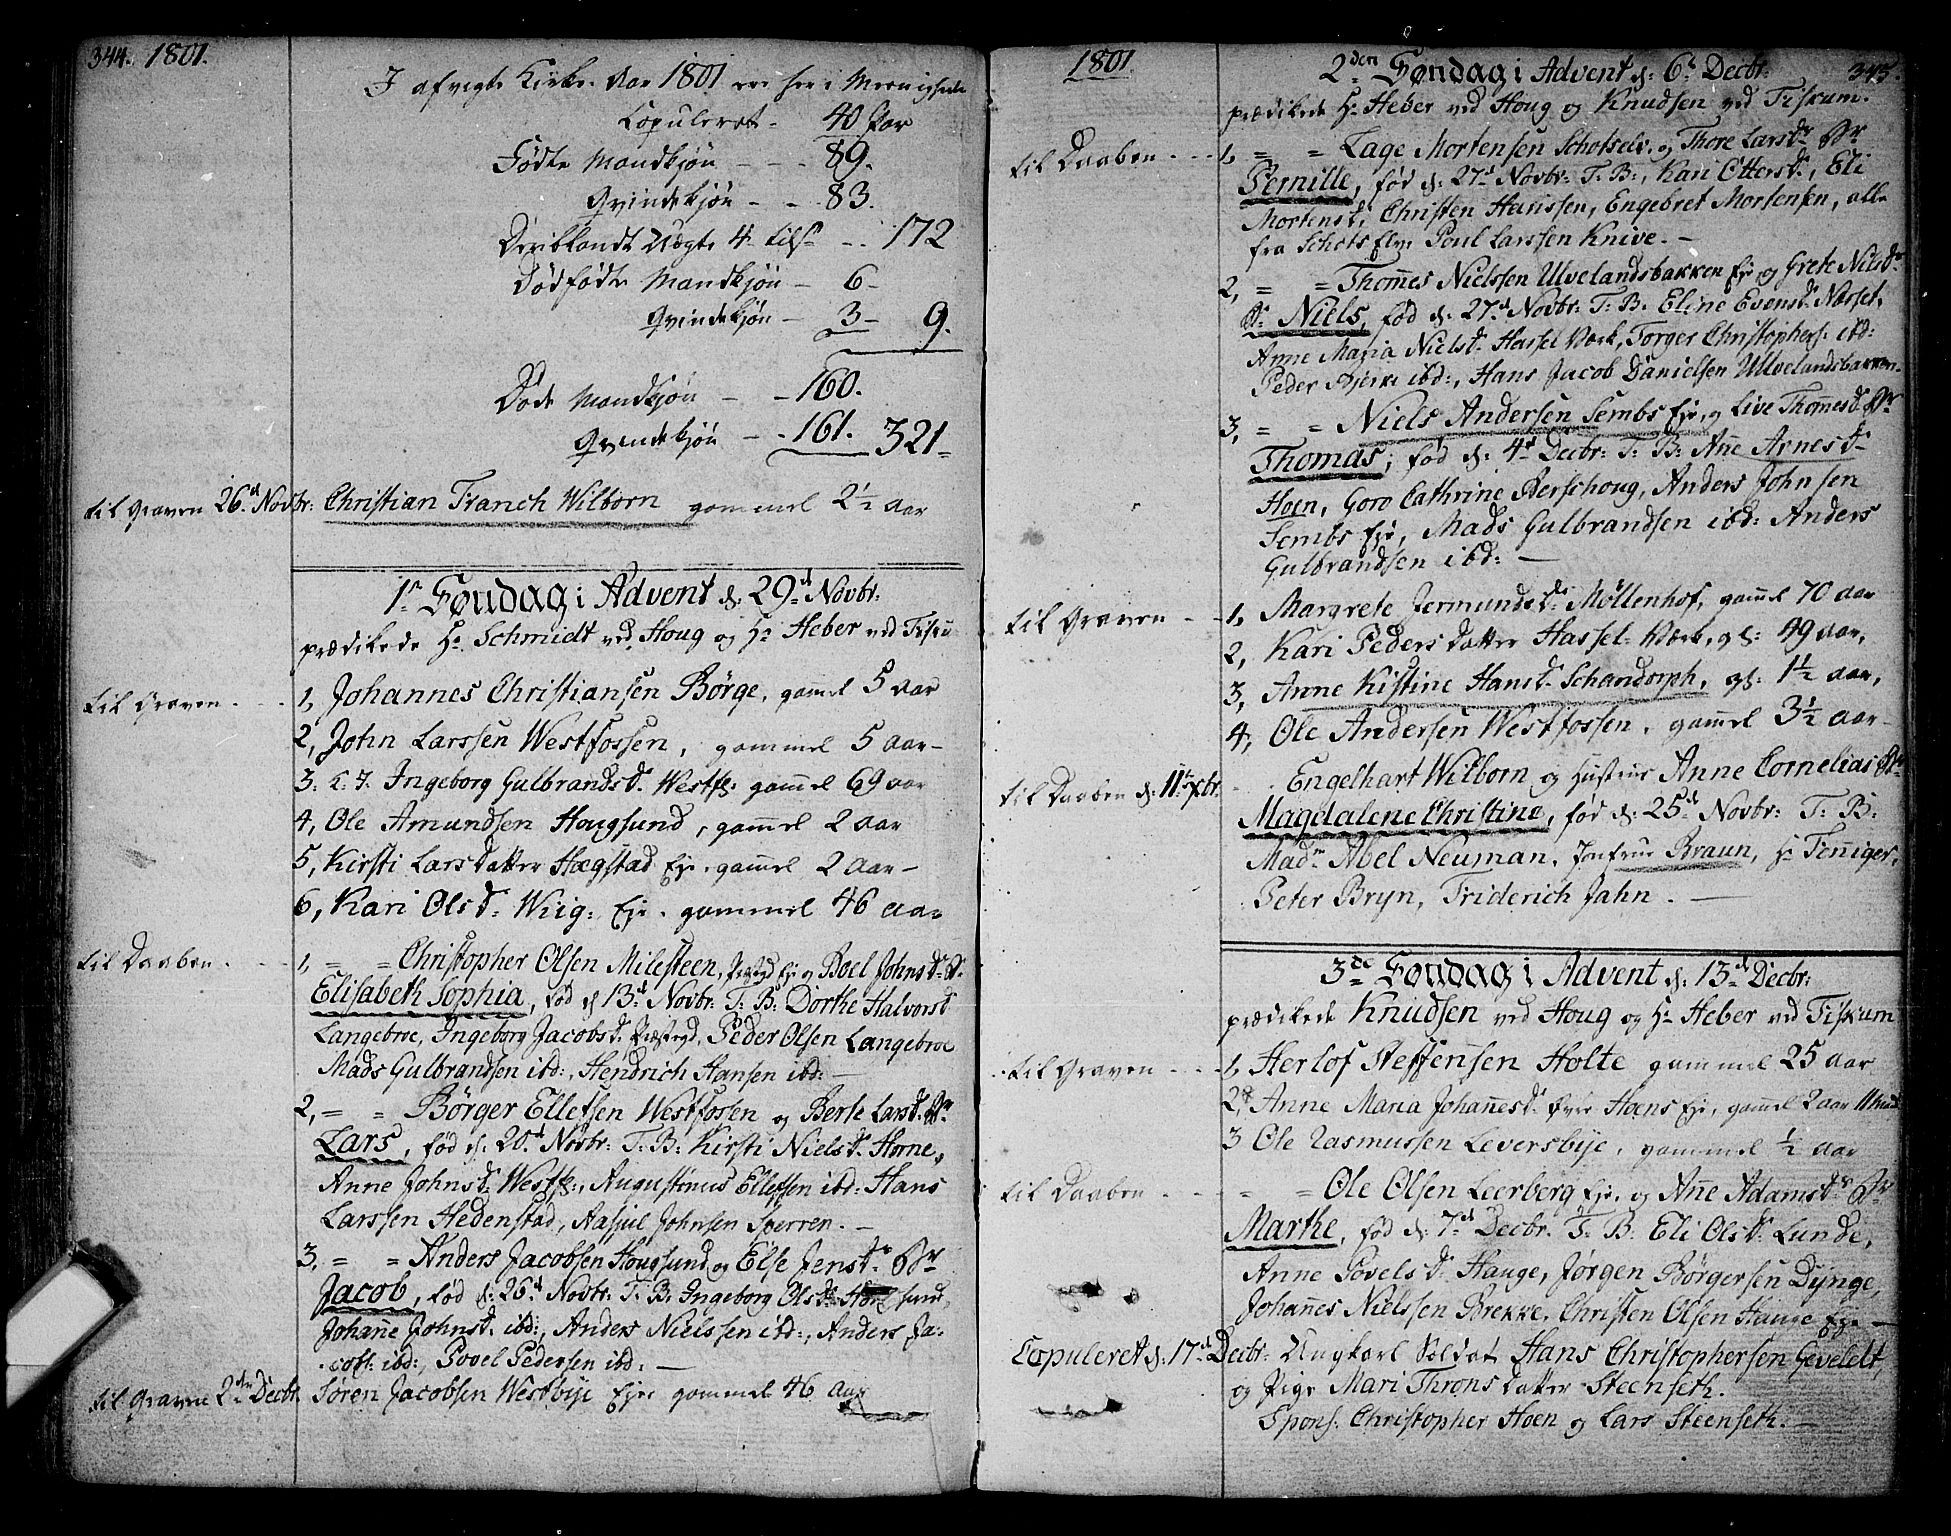 344. 1801.
I afvigte Kirke-Aar 1801 ere her i Meenigheden
Copuleret - 40 Par
Fødte Mandkjøn - - - 89.
Qvindekjøn - - 83.
Deriblandt Uægte 4 tils. -- 172
Dødfødte Mandkjøn - 6-
Qvindekjøn - 3- 9.
Døde Mandkjøn - - 160.
Qvindekjøn - - 161. 321-
til Graven 26d Novbr: Christian Franch Wilborn gammel 2½ Aar
1s Søndag i Advent d: 29d Novbr:
prædikede Hr Schmidt ved Houg og Hr Heber ved Fiskum
til Graven - - - 1, Johannes Christiansen Børge, gammel 5 Aar
2, John Larssen Westfossen, gammel 5 Aar-
3. Ingeborg Gulbrandsd. Westf: gammel 69 Aar
4, Ole Amundsen Hougsund, gammel 2 Aar
5, Kirsti Larsdatter Hægstad Eje. gammel 2 Aar-
6, Kari Olsd. Wiig: Eje. gammel 46 Aar
til Daaben - - - 1, = = Christopher Olsen Milesteen, Eje og Boel Johnsd. D.
Elisabeth Sophia, fød d 13d Novbr: T: B: Dorthe Halvorsd
Langebroe, Ingeborg Jacobsd. Præstegd, Peder Olsen Langebroe
Mads Gulbrandsen ibd:, Hendrich Hansen ibd: -
2, = = Børger Ellefsen Westfossen og Berte Larsd. Br
Lars, fød d: 20d Novbr: T: B: Kirsti Nielsd. Horne,
Anne Johnsd. Westf:, Augustinus Ellefsen ibd: Hans
Larssen Hedenstad, Aasjul Johnsen Sperren. -
3, = = Anders Jacobsen Hougsund og Else Jensd. Br
Jacob, fød d: 26d Novbr: T: B: Ingeborg Olsd. sund,
Johanne Johnsd. ibd:, Anders Nielssen ibd:, Anders Ja-
cobs: ibd:, Povel Pedersen ibd: -
til Graven 2den Decbr. Søren Jacobsen Westbye Eje gammel 46 Aar
1801
345.
2den Søndag i Advent d: 6t Decbr:
prædikede Hr Heber ved Houg og Knudsen ved Fiskum.
til Daaben - - - 1, = = Lage Mortensen Schotselv. og Thore Larsdr Br
Pernille, fød d: 27d Novbr: T: B:, Kari Ottersd., Eli
Mortensd, Christen Hanssen, Engebret Mortensen, alle
fra Schots Elv. Poul Larssen Knive. -
2, = = Thomes Nielssen Ulvelandsbakken Eje og Grete Nilsdr
Br Niels, fød d: 27d Novbr: T: B: Eline Evensd. Næsset,
Anne Maria Nielsd. Hassel Værk, Torger Christophers: ibd:
Peder Bjerke ibd:, Hans Jacob Danielsen Ulvelandsbakken.
3, = = Niels Andersen Sembs Eje, og Live Thomesd. Br
Thomas, fød d: 4d Decbr: T: B: Anne Arnesd.
Hoen, Goro Cathrine Berschoug, Anders Johnsen
Sembs Eje, Mads Gulbrandsen ibd: Anders
Gulbrandsen ibd: -
til Graven - - 1, Margrete Jermundsd. Møllenhof, gammel 70 Aar
2, Kari Pedersdatter Hassel-Værk, gl: 49 Aar,
3, Anne Kistine Hansd. Schandorph, gl: 1½ Aar,
4, Ole Andersen Westfossen, gammel 3½ Aar-
til Daaben d: 11te Xbr. Engelhart Wilborn og Hustrue Anne Cornelias Br
Magdalene Christine, fød d: 25d Novbr: T: B:
Madm Abel Neuman, Jomfrue Braun, Hr Fenniger,
Peter Bryn, Friderich Jahn. -
3de Søndag i Advent d: 13d Decbr:
prædikede Knudsen ved Houg og Hr Heber ved Fiskum
til Graven - - - 1, Herlof Steffensen Holte gammel 25 Aar
2, Anne Maria Johannesd. Øvre Hoens Eje, gammel 2 Aar
3 Ole Rasmussen Leversbye, gammel ½ Aar
til Daaben - - = = Ole Olsen Leerberg Eje, og Anne Adamsdr Br
Marthe, fød d: 7d Decbr. T: B: Eli Olsd. Lunde,
Anne Povelsd. Hauge, Jørgen Børgersen Dynge,
Johannes Nielssen Brekke, Christen Olsen Hauge Eje -
Copuleret d: 17d Decbr: Ungkarl Soldat Hans Christophersen Gevelelt,
og Pige Mari Thronsdatter Steenseth.
Spons. Christopher Hoen og Lars Steenseth. -